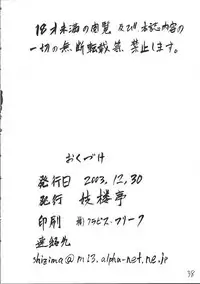 18才未満の閲覧 及び本誌内容の
一切の無断転載等、禁止します。
おくづけ
発行日 2003.12.30
発行 技楼亭
印刷 ㈱プラビス・フリーク
連絡先
shizima@mi3.alpha-net.ne.jp
38